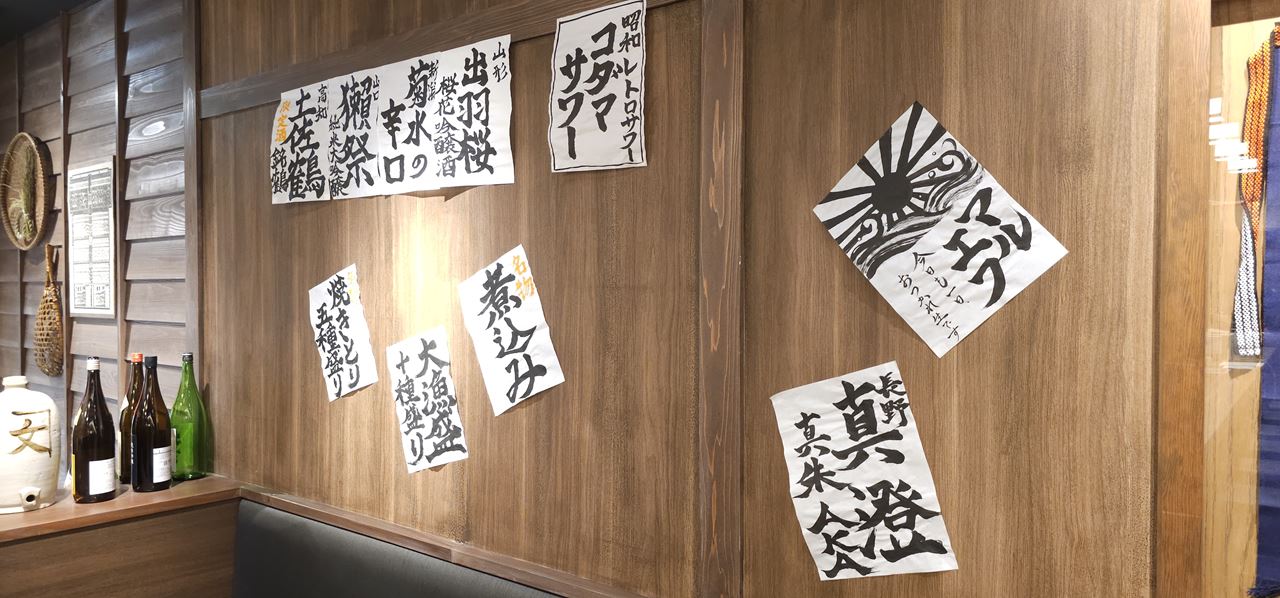 山形
出羽桜
桜花吟醸酒
新潟
菊水の
辛口
山口
獺祭
純米大吟醸
高知
土佐鶴
限定酒
銘鶴
昭和レトロサワー
コダマ
サワー
名物
煮込み
大漁盛
十種盛り
焼きとり
五種盛り
マル
エフ
今日も一日、
おつかれ生です
長野
真澄
真朱AKA
文